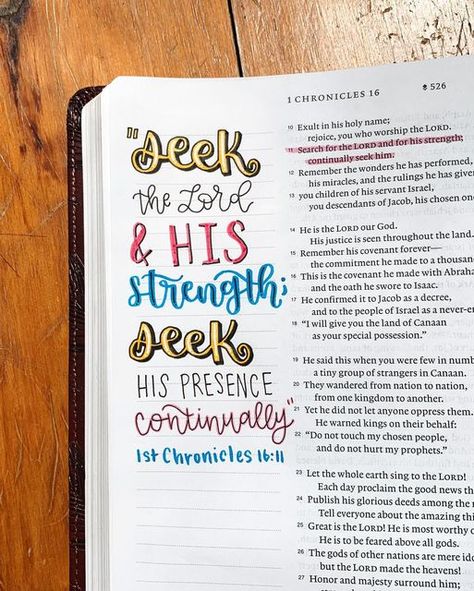 1 CHRONICLES 16
526
"Seek
the Lord
& HIS
strength;
seek
HIS PRESENCE
continually"
1st Chronicles 16:11
10 Exult in his holy name;
rejoice, you who worship the LORD.
11 Search for the LORD and for his strength;
continually seek him.
12 Remember the wonders he has performed,
his miracles, and the rulings he has given
13 you children of his servant Israel,
you descendants of Jacob, his chosen
14 He is the LORD our God.
His justice is seen throughout the land.
15 Remember his covenant forever—
the commitment he made to a
16 This is the covenant he made with
and the oath he swore to Isaac.
17 He confirmed it to Jacob as a decree,
and to the people of Israel as a
18 "I will give you the land of Canaan
as your special possession."
19 He said this when you were few in
a tiny group of strangers in Canaan.
20 They wandered from nation to nation,
from one kingdom to another.
21 Yet he did not let anyone oppress them.
He warned kings on their behalf:
22 "Do not touch my chosen people,
and do not hurt my prophets."
23 Let the whole earth sing to the LORD!
Each day proclaim the good news
24 Publish his glorious deeds among the
Tell everyone about the amazing
25 Great is the LORD! He is most worthy
He is to be feared above all gods.
26 The gods of other nations are mere
but the LORD made the heavens!
27 Honor and majesty surround him;